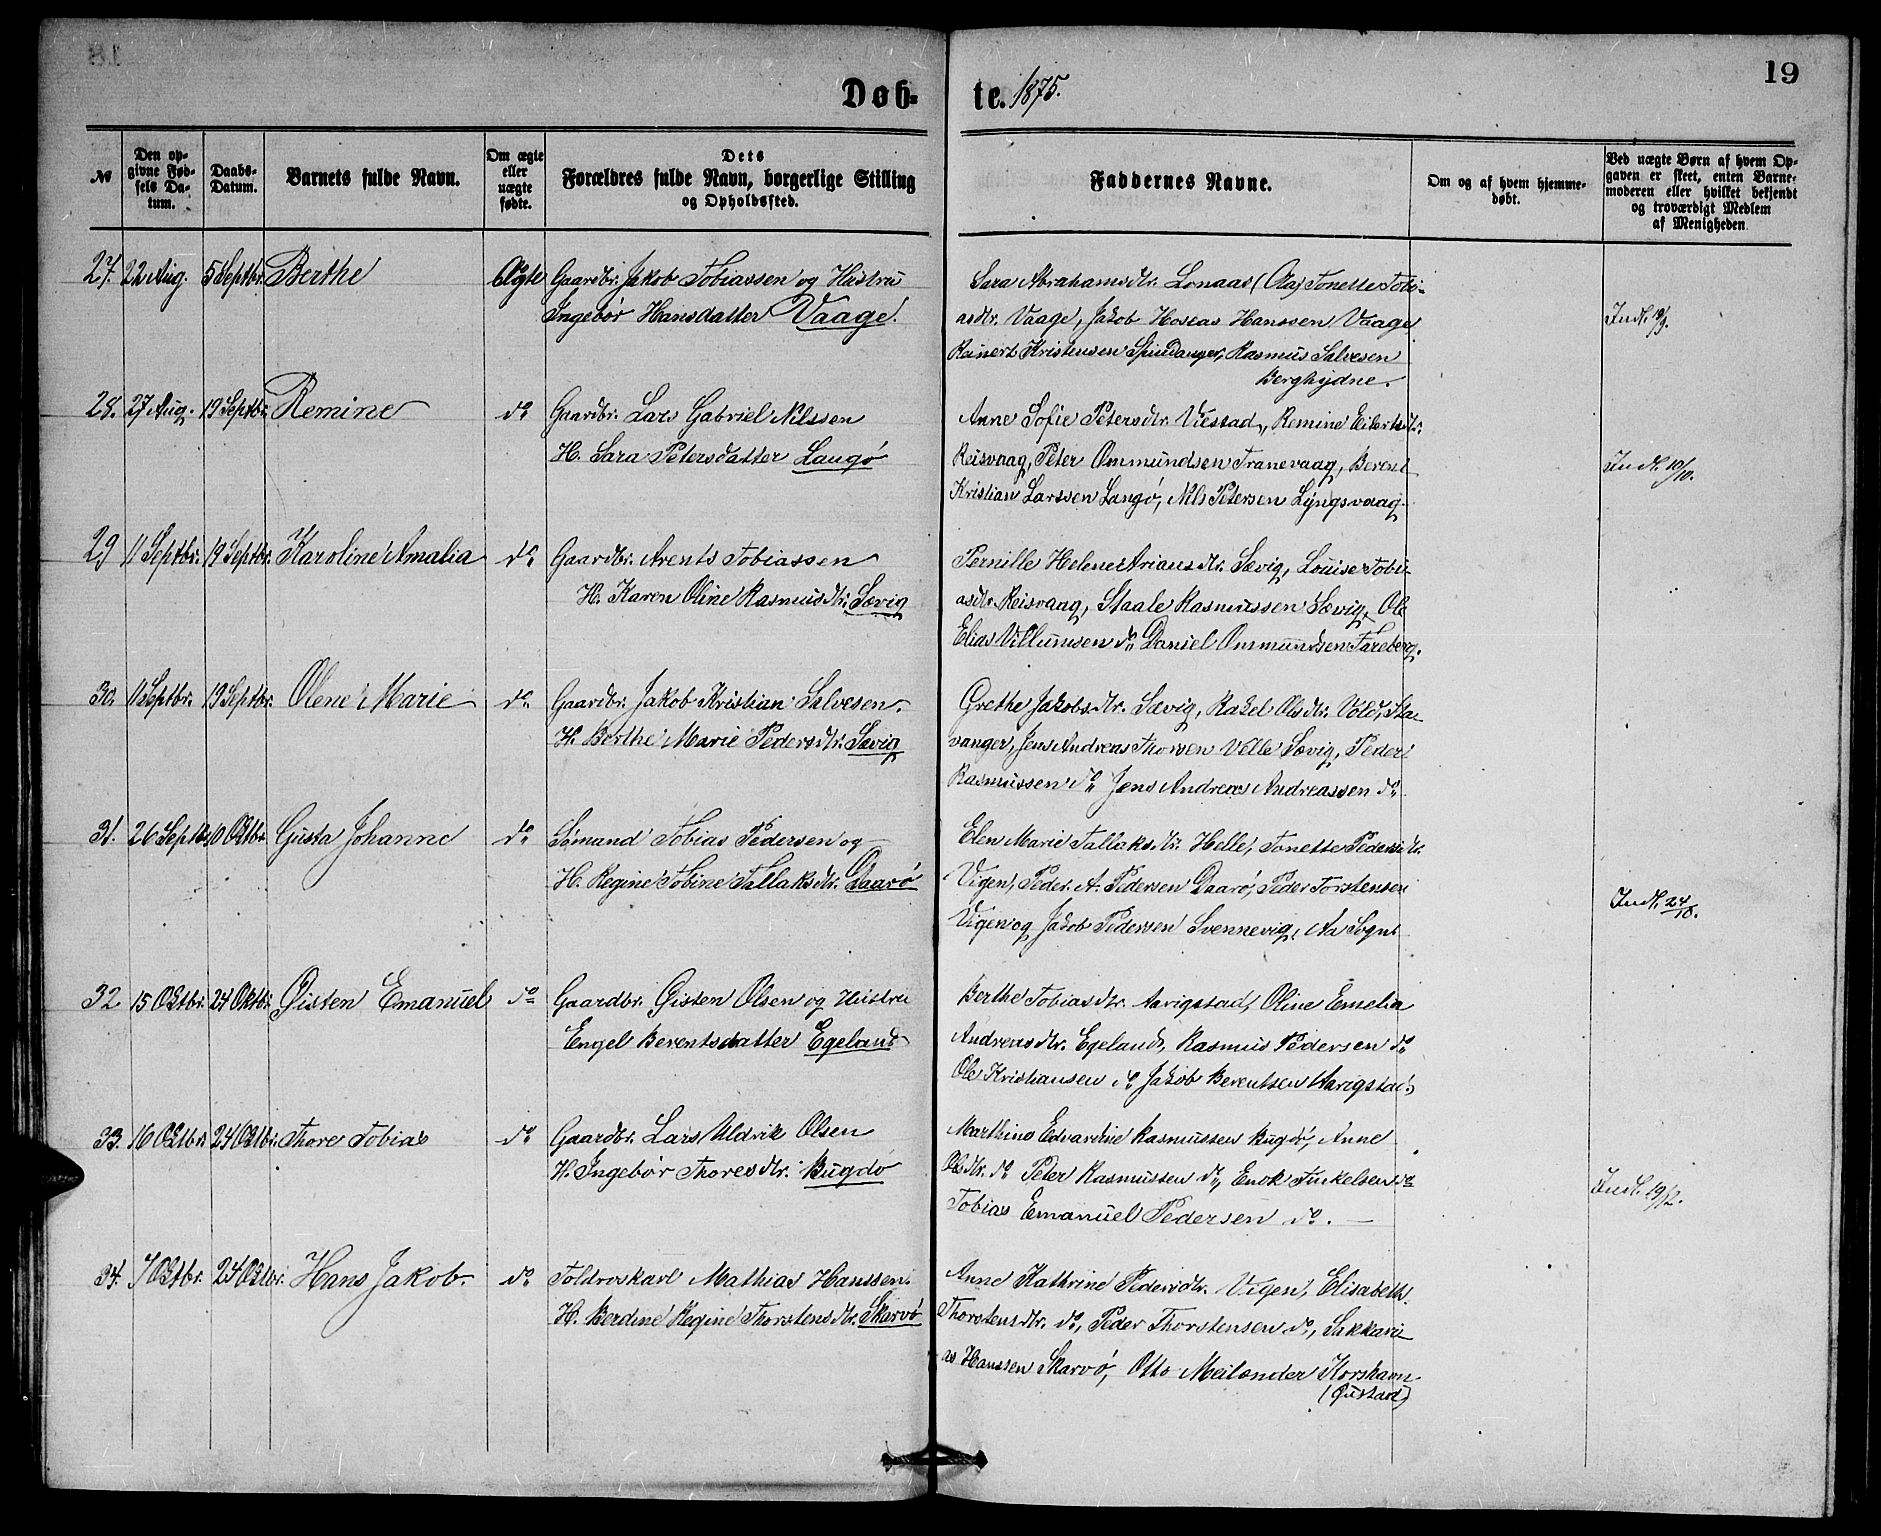 19
Døb-
te. 1875.
№
Den op-
givne Fød-
sels Da-
tum.
Daabs-
Datum.
Barnets fulde Navn.
Om ægte
eller
uægte
fødte.
Dets
Forældres fulde Navn, borgerlige Stilling
og Opholdssted.
Faddernes Navne.
Om og af hvem hjemme-
døbt.
Ved uægte Børn af hvem Op-
gaven er skeet, enten Barne-
moderen eller hvilket bekjendt
og troværdigt Medlem
af Menigheden.
27. 22 Aug. 5 Septbr. Berthe Ægte Gaardbr. Jakob Tobiassen og Hustru
Ingebør Hansdatter Vaage.
Sara Abrahamsdtr. Lonaas (Aa) Tonette Tobi-
asdtr. Vaage, Jakob Hoseas Hanssen Vaage
Reinert Kristensen Spindanger, Rasmus Salvesen
Berghydne.
Indl. 19/9.
28. 27 Aug. 19 Septbr. Remine do Gaardbr. Lars Gabriel Nilssen
H. Sara Petersdatter Langø
Anne Sofie Petersdtr. Viestad, Remine Eilertsdtr.
Reisvaag, Peter Ommundsen Tranevaag, Berent
Kristian Larssen Langø, Nils Petersen Lyngsvaag.
Indl. 10/10.
29 11 Septbr. 19 Septbr. Karoline Amalia do Gaardbr. Arents Tobiassen
H. Karen Oline Rasmusdtr. Sævig
Pernille Helene Ariansdtr. Sævig, Louise Tobi-
asdtr. Reisvaag, Staale Rasmussen Sævig, Ole
Elias Villumsen do Daniel Ommundsen Fareberg.
30. 11 Septbr. 19 Septbr. Olene Marie do Gaardbr. Jakob Kristian Salvesen.
H. Berthe Marie Pedersdtr. Sævig
Grethe Jakobsdtr. Sævig, Rakel Olsdtr. Vold, Sta-
vanger, Jens Andreas Thorsen Velle Sævig, Peder
Rasmussen do Jens Andreas Andreassen do
31. 26 Septbr. 10 Oktbr. Gusta Johanne do Sømand Tobias Pedersen og
H. Regine Tobine Tallaksdtr. Daarø
Elen Marie Tallaksdtr. Helle, Tonette Pedersdtr.
Vigen, Peder A. Pedersen Daarø, Peder Torstensen
Vigen og Jakob Pedersen Svennevig, Aa Sogn
Indl. 24/10.
32. 15 Oktbr. 24 Oktbr. Øisten Emanuel do Gaardbr. Øisten Olsen og Hustru
Engel Berentsdatter Egeland
Berthe Tobiasdtr. Aavigstad, Oline Emelia
Andreasdtr. Egeland, Rasmus Pedersen do
Ole Kristiansen do Jakob Berentsen Aavigstad
33. 16 Oktbr. 24 Oktbr. Thore Tobias do Gaardbr. Lars Uldrik Olsen
H. Ingebør Thoresdtr. Bugdø
Marthine Edvardine Rasmussen Bugdø, Anne
Olsdtr. do Peter Rasmussen do, Enok Tinkelsen do
Tobias Emanuel Pedersen do.
Indl. 19/12.
34. 7 Oktbr. 24 Oktbr. Hans Jakob do Toldroskarl Mathias Hanssen.
H. Berdine Regine Thorstensdtr. Skarvø
Anne Kathrine Pedersdtr. Vigen, Elisabeth.
Thorstensdtr. do, Peder Thorstensen do, Sakkari-
as Hanssen Skarvø, Otto Meilænder Korshavn
(Gustad)